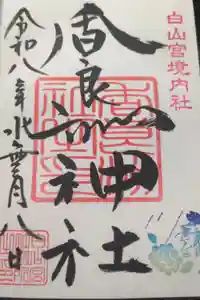 白山宮境内社
香良洲神社
令和八年水無月八日